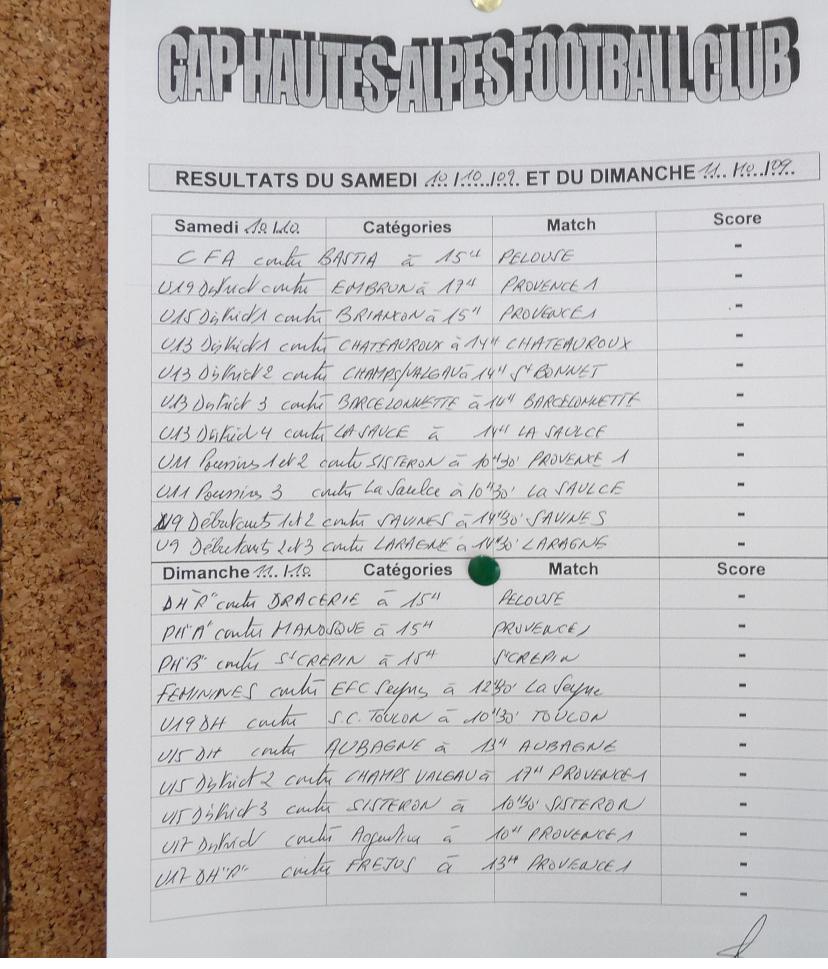 GAP HAUTES-ALPES FOOTBALL CLUB
RESULTATS DU SAMEDI 10/10/09 ET DU DIMANCHE 11/10/09
Samedi 10/10 Catégories Match Score
CFA contre BASTIA à 15H PELOUSE -
U19 District contre EMBRUN à 17H PROVENCE 1 -
U15 District 1 contre BRIANXON à 15H PROVENCE 1 -
U13 District 1 contre CHATEAUROUX à 14H CHATEAUROUX -
U13 District 2 contre CHAMPS/VALGAU à 14H St BONNET -
U13 District 3 contre BARCELONNETTE à 14H BARCELONNETTE -
U13 District 4 contre LA SAUCE à 14H LA SAULCE -
U11 Poussins 1 et 2 contre SISTERON à 10H30' PROVENCE 1 -
U11 Poussins 3 contre La Saulce à 10H30' LA SAULCE -
U9 Débutants 1et 2 contre SAVINES à 14H30' SAVINES -
U9 Débutants 2et 3 contre LARAGNE à 14H30' LARAGNE -
Dimanche 11/10 Catégories Match Score
DH"R" contre DRACERIE à 15H PELOUSE -
PH"A" contre MANOSQUE à 15H PROVENCE 1 -
PH"B" contre St CREPIN à 15H St CREPIN -
FEMININES contre EFC Seyne à 12H30' La Seyne -
U19 DH contre S.C. TOULON à 10H30' TOULON -
U15 DH contre AUBAGNE à 13H AUBAGNE -
U15 District 2 contre CHAMPS VALGAU à 17H PROVENCE 1 -
U15 District 3 contre SISTERON à 10H30' SISTERON -
U17 District contre Argentière à 10H PROVENCE 1 -
U17 DH"R" contre FREJUS à 13H PROVENCE 1 -
-